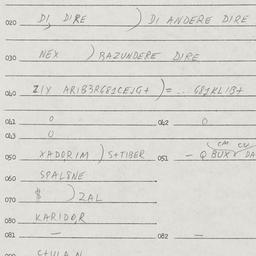 020 DI, DIRE ) DI ANDERE DIRE
030 NEX ) RAZUNDERE DIRE
040 I/Y ARIB3R681CEJG+ )= ... 681KLIB+
041 0 042 0
043 0
050 XADORIM ) S+TIBER 051 — Q BUXY DA
060 SPALSNE
070 $ ) ZAL
080 KARIDOR
081 — 082 —